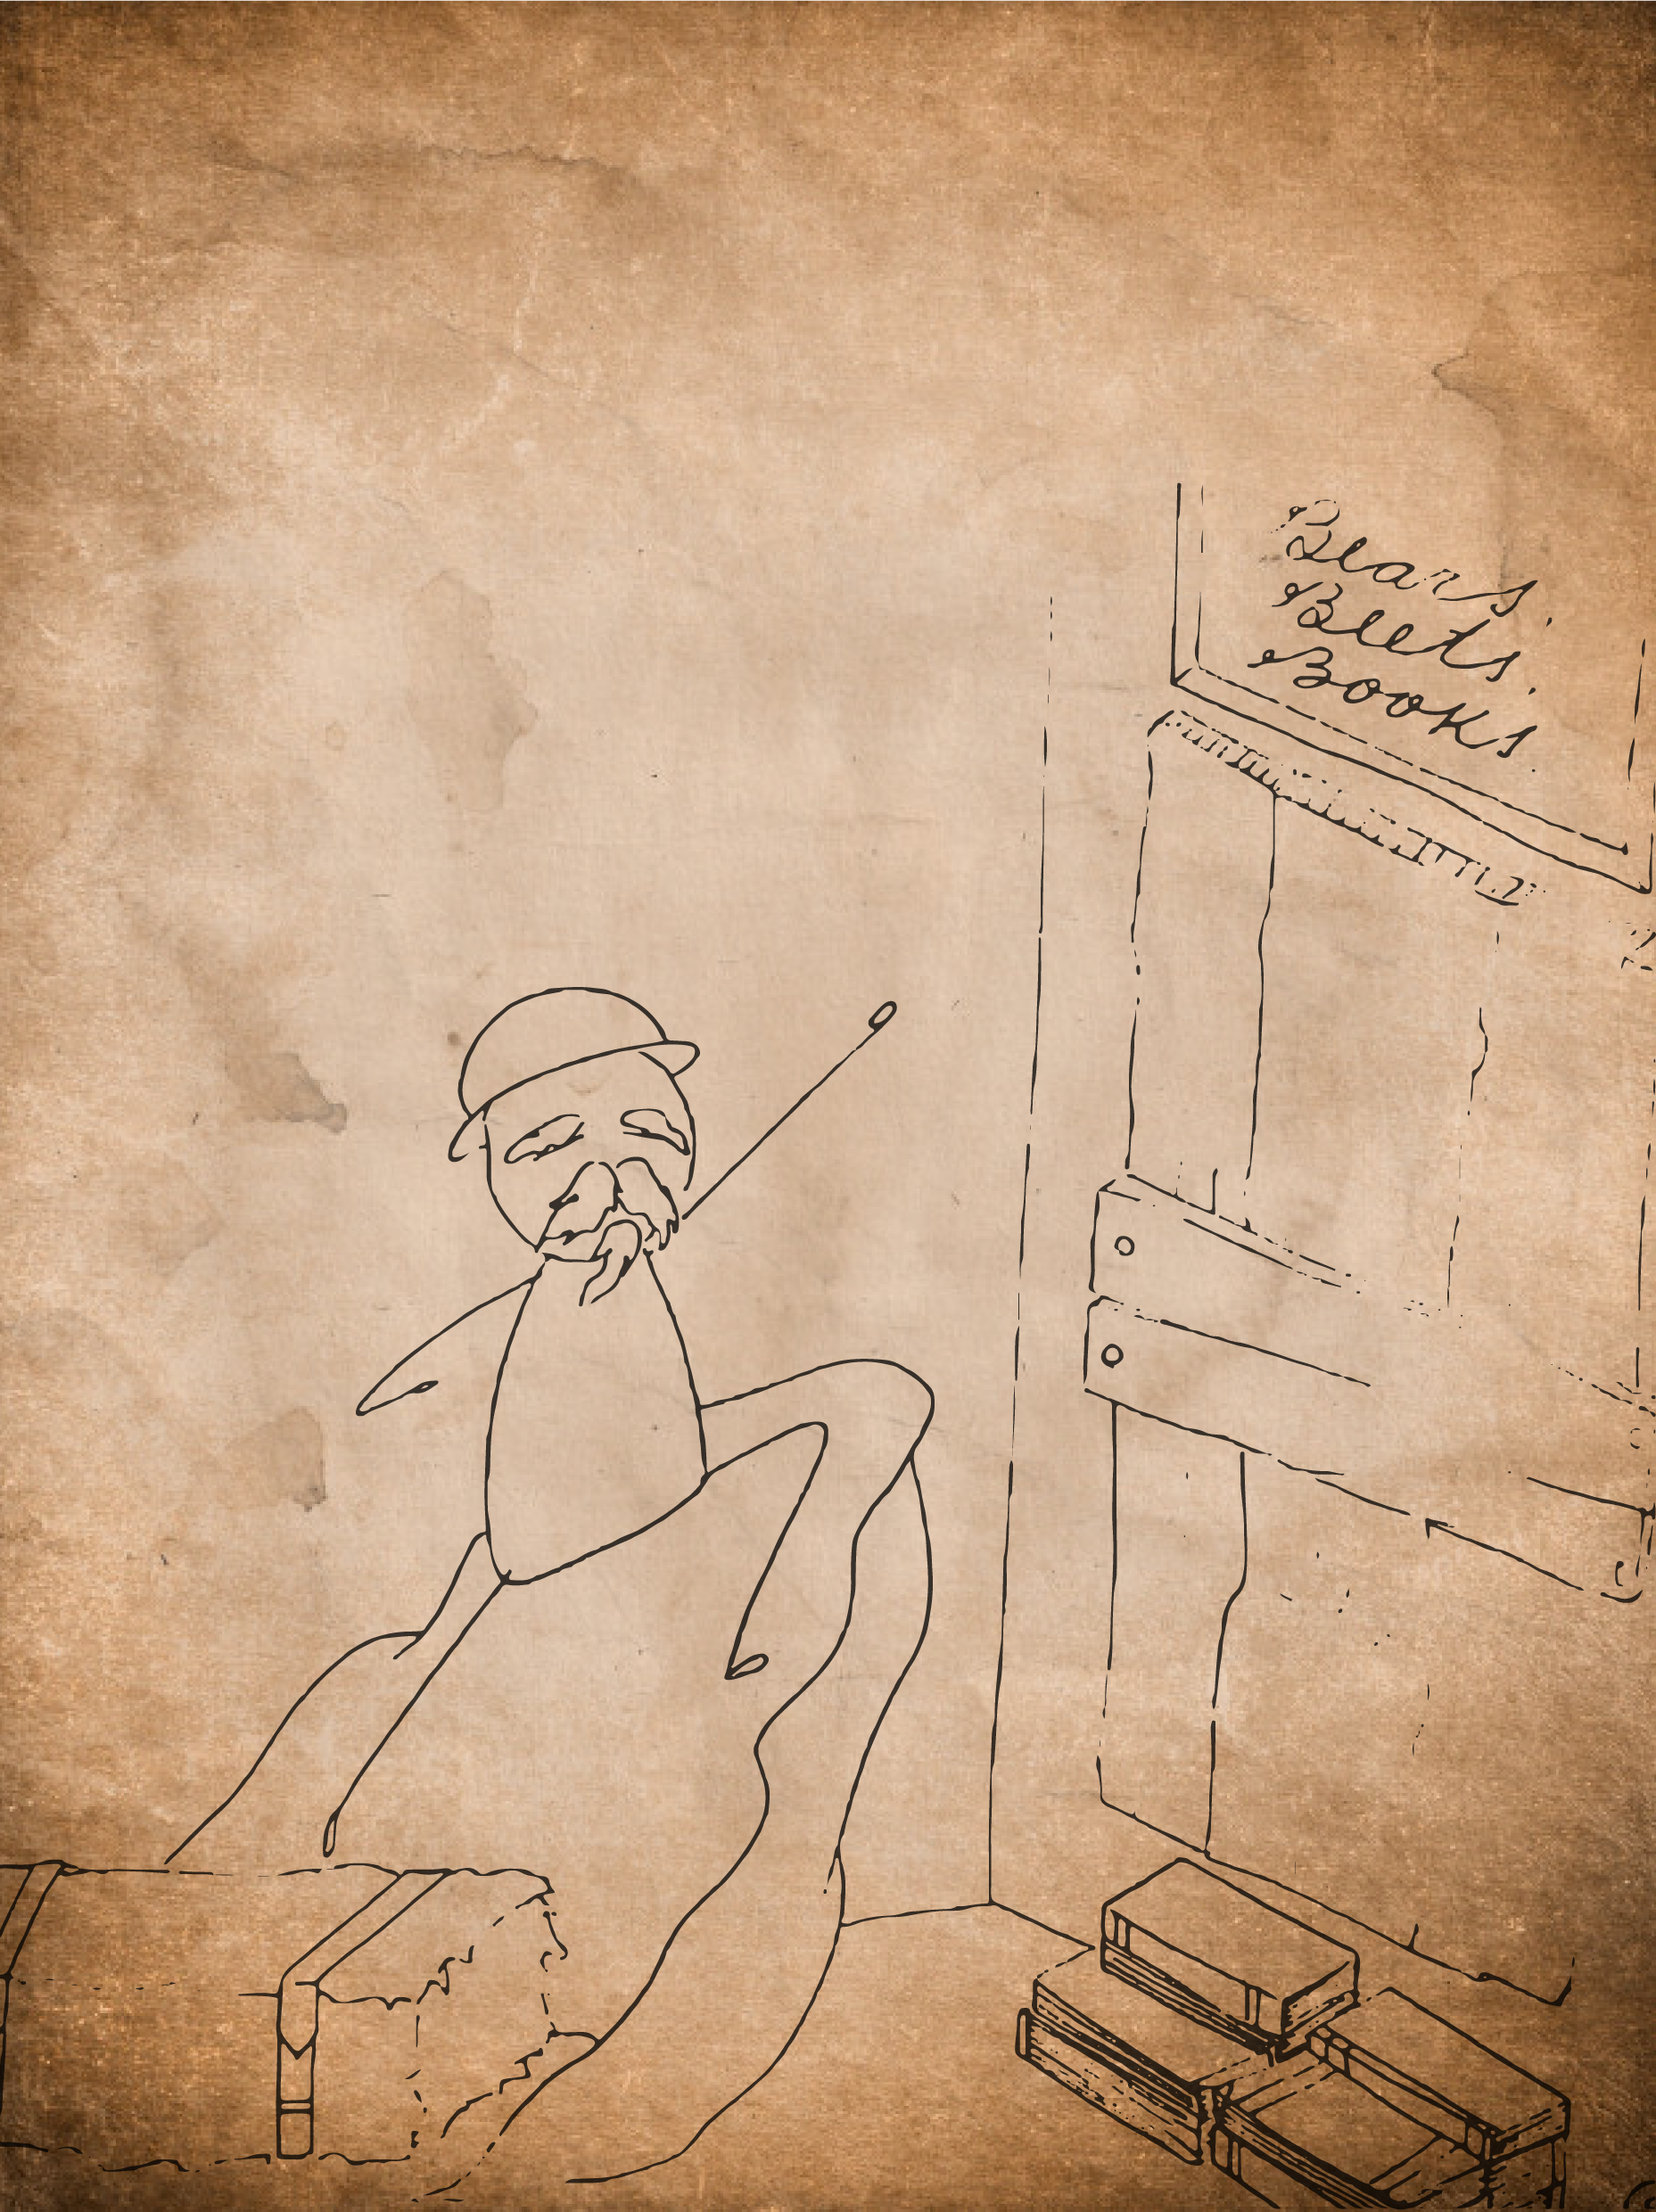 Bears.
Beets.
Books.